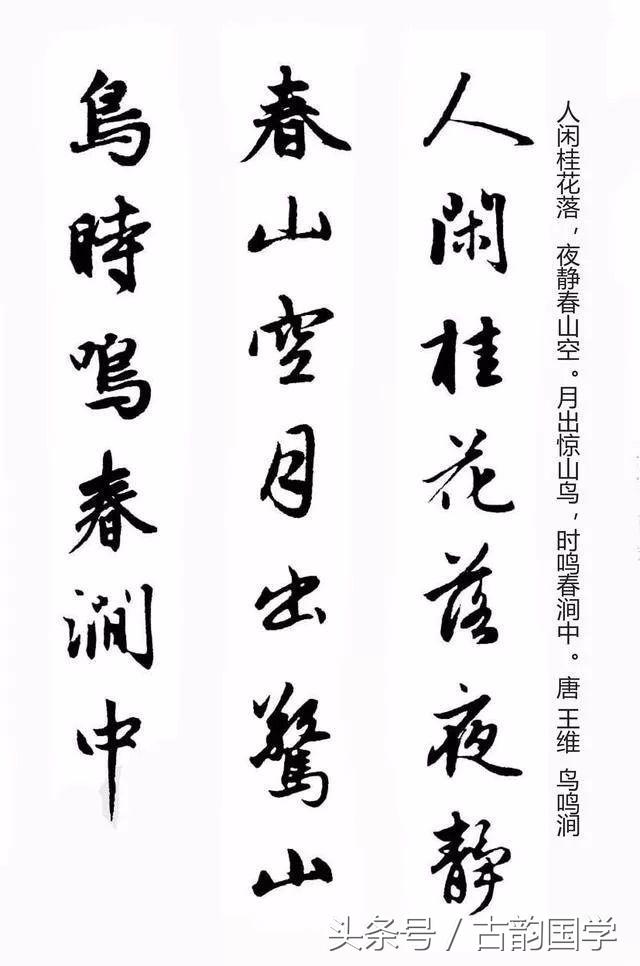 人闲桂花落，夜静春山空。月出惊山鸟，时鸣春涧中。唐 王维 鸟鸣涧
人閑桂花落夜靜
春山空月出驚山
鳥時鳴春澗中
头条号 / 古韵国学